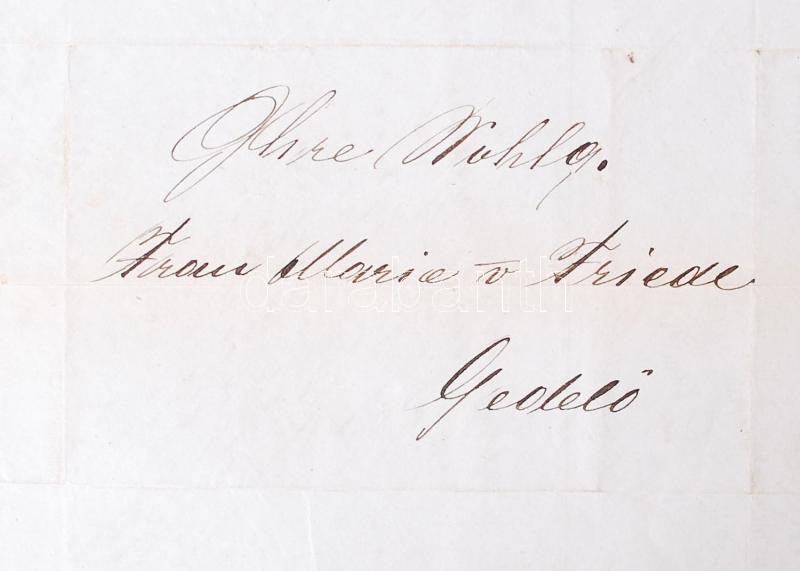 Ihre Wohlg.
Frau Marie v Friede
Gedelö
darabanth